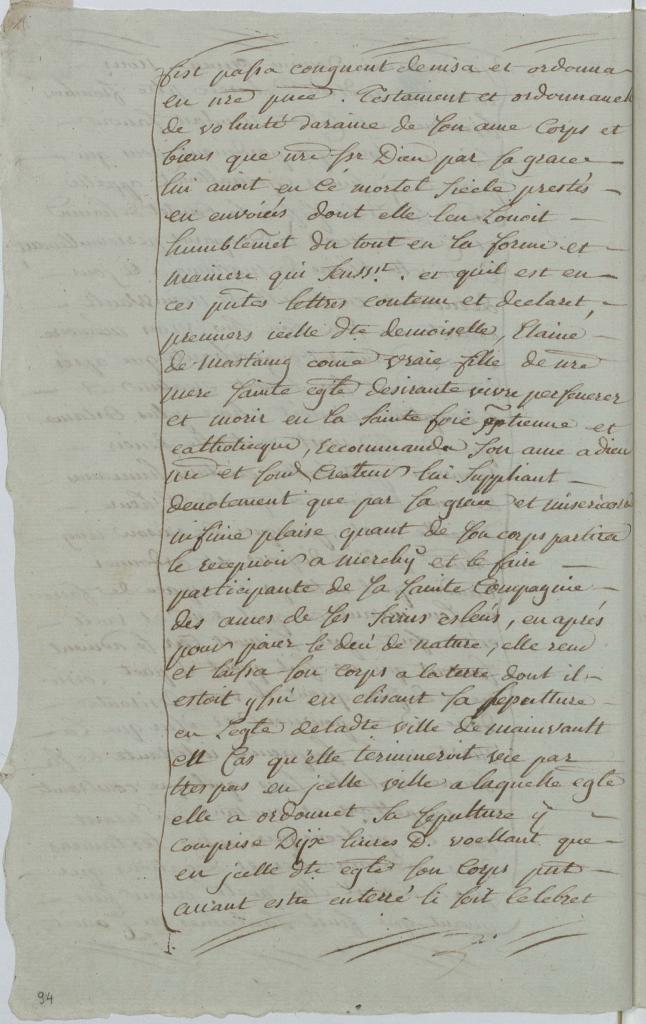 fist passa congnent devisa et ordonna
en nre pnce. Testament et ordonnance
de volunté daraine de son ame Corps et
biens que nre Sr Dieu par sa grace
lui avoit en Cé mortel siecle prestés
en envoiés dont elle len Louoit
humblemēt du tout en la forme et
maniere qui sensst. et qu'il est en
ces pntes lettres contenu et declaret,
premiers icelle dte demoiselle,
de Mastaing come vraie fille de nre
mere Sainte eglē desirante vivre perseverer
et morir en la Sainte foie xptienne et
catholicque, Recommanda Son ame a dieu
nre et Souv Createur lui Suppliant
devotement que par sa grace et misericorde
infinie plaise quant de son corps partira
le recepvoir a merchy et le faire
participante de la Sainte Compagnie
des ames de ses Sains esleus, en aprés
pour paier le deu de nature, elle rend
et laissa son corps a la terre dont il
estoit yssu en elisant sa sepulture
en Legle deladte ville de mainvault
en Cas qu'elle termineroit vie par
trespas en jcelle ville a laquelle eglē
elle a ordonnet. Sa sepulture ÿ
comprise Dix livres D. voellant que
en jcelle dte eglē son Corps pnt
avant estre enterré li soit celebret
94